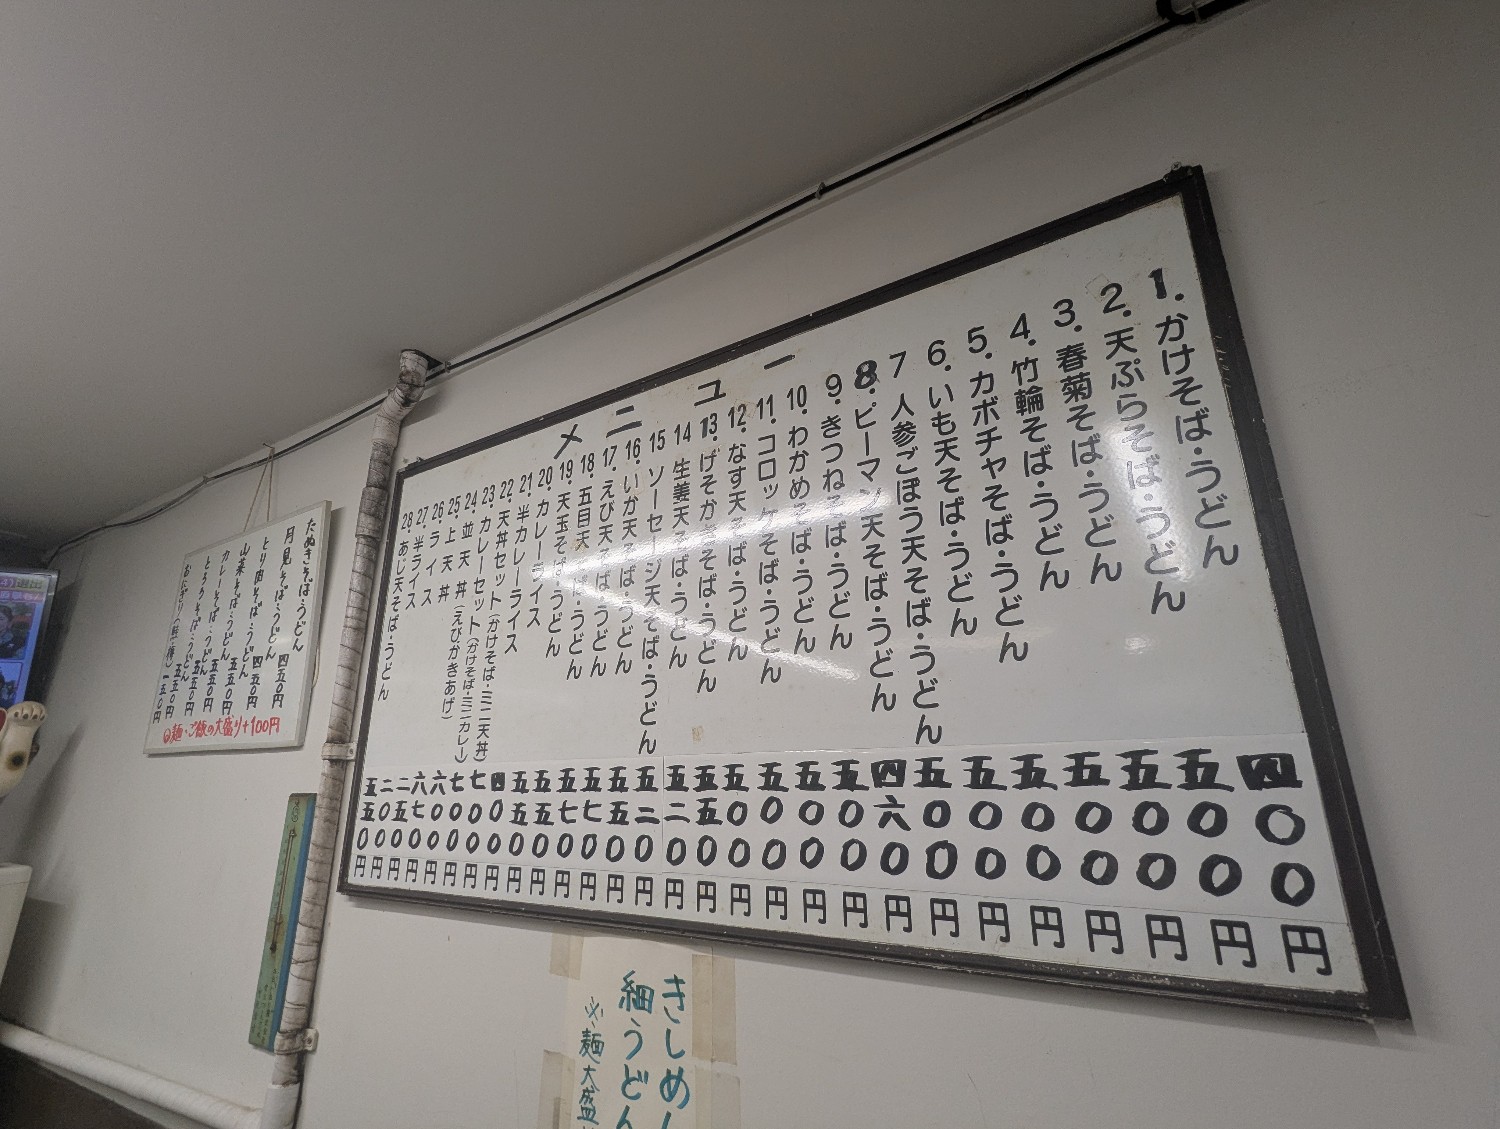 メニュー
1. かけそば・うどん 四〇〇円
2. 天ぷらそば・うどん 五〇〇円
3. 春菊そば・うどん 五〇〇円
4. 竹輪そば・うどん 五〇〇円
5. カボチャそば・うどん 五〇〇円
6. いも天そば・うどん 五〇〇円
7 人参ごぼう天そば・うどん 五〇〇円
8. ピーマン天そば・うどん 四六〇円
9. きつねそば・うどん 五〇〇円
10. わかめそば・うどん 五〇〇円
11. コロッケそば・うどん 五〇〇円
12. なす天そば・うどん 五〇〇円
13. げそかきそば・うどん 五五〇円
14 生姜天そば・うどん 五二〇円
15 ソーセージ天そば・うどん 五二〇円
16. いか天そば・うどん 五五〇円
17. えび天そば・うどん 五七〇円
18. 五目天そば・うどん 五七〇円
19. 天玉そば・うどん 五五〇円
20. カレーライス 五五〇円
21. 半カレーライス 四〇〇円
22. 天丼セット(かけそば・ミニ天丼) 七〇〇円
23. カレーセット(かけそば・ミニカレー) 七〇〇円
24. 並天丼 六〇〇円
25. 上天丼(えびかきあげ) 六七〇円
26. ライス 二五〇円
27. 半ライス 二〇〇円
28 あじ天そば・うどん 五五〇円
たぬきそば・うどん 四五〇円
月見そば・うどん 四五〇円
とり肉そば・うどん 五五〇円
山菜そば・うどん 五五〇円
カレーそば・うどん 五五〇円
とろろそば・うどん 五五〇円
おにぎり(鮭・梅) 一五〇円
◎麺・ご飯の大盛り+100円
きしめん
細うどん
※麺大盛